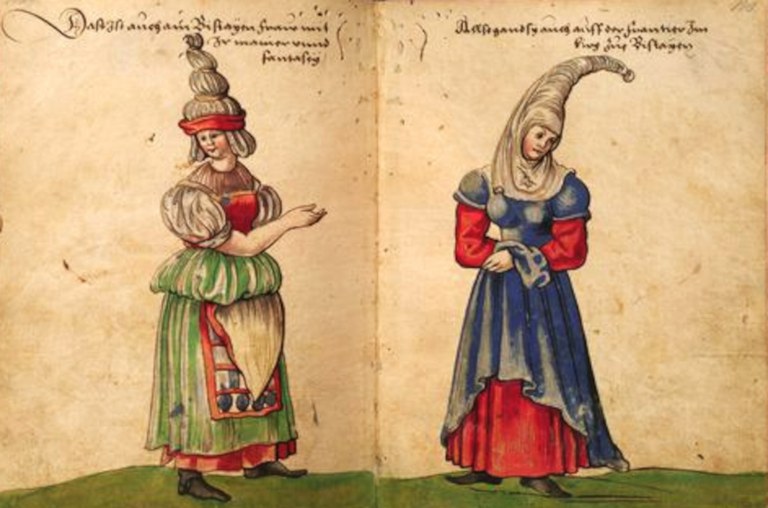 Das Ist auch ain Bistayen fraue mit
Ir manier unnd
fantasey
Allso gand sy auch auff der frantier Im
kirg zuo Bistayen